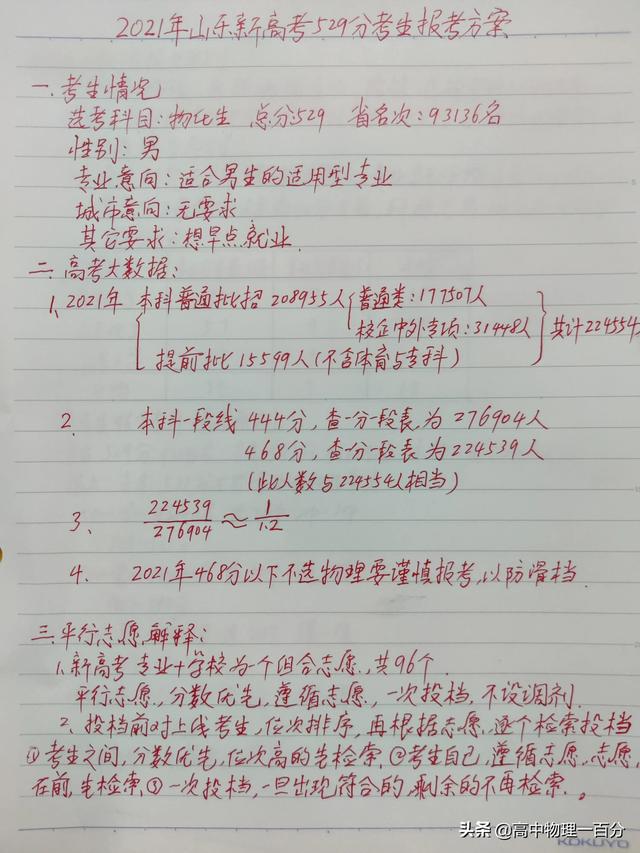 2021年山东新高考529分考生报考方案
一.考生情况
选考科目:物化生 总分:529 省名次:93136名
性别:男
专业意向:适合男生的适用型专业
城市意向:无要求
其它要求:想早点就业.
二.高考大数据:
1、2021年 本科普通批招 208955人 普通类:177507人
校企中外专项:31448人 共计224554
提前批15599人(不含体育与专科)
2、 本科一段线 444分,查一分一段表,为 276904人
468分,查一分一段表 为 224539人
(此人数与224554人相当)
3、 224539/276904 ≈ 1/1.2
4、 2021年468分以下不选物理要谨慎报考,以防滑档.
三.平行志愿解释:
1.新高考 专业+学校为一个组合志愿,共96个.
平行志愿,分数优先,遵循志愿,一次投档,不设调剂.
2、投档前对上线考生,位次排序,再根据志愿,逐个检索投档
①考生之间,分数优先,位次高的先检索.②考生自己,遵循志愿,志愿
在前,先检索.③一次投档,一旦出现符合的,剩余的不再检索.。
头条@高中物理一百分
KOKUYO